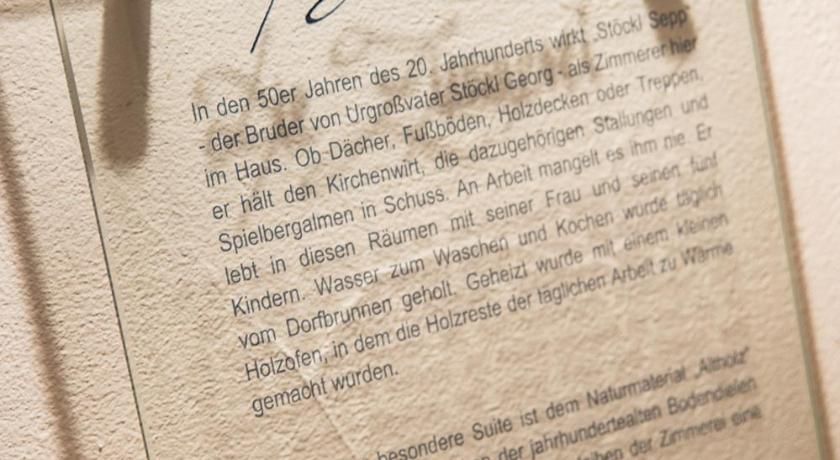 In den 50er Jahren des 20. Jahrhunderts wirkt „Stöckl Sepp“
- der Bruder von Urgroßvater Stöckl Georg - als Zimmerer hier
im Haus. Ob Dächer, Fußböden, Holzdecken oder Treppen,
er hält den Kirchenwirt, die dazugehörigen Stallungen und
Spielbergalmen in Schuss. An Arbeit mangelt es ihm nie. Er
lebt in diesen Räumen mit seiner Frau und seinen fünf
Kindern. Wasser zum Waschen und Kochen wurde täglich
vom Dorfbrunnen geholt. Geheizt wurde mit einem kleinen
Holzofen, in dem die Holzreste der täglichen Arbeit zu Wärme
gemacht wurden.
besondere Suite ist dem Naturmaterial „Altholz“
der jahrhundertealten Bodendielen
der Zimmerei eine